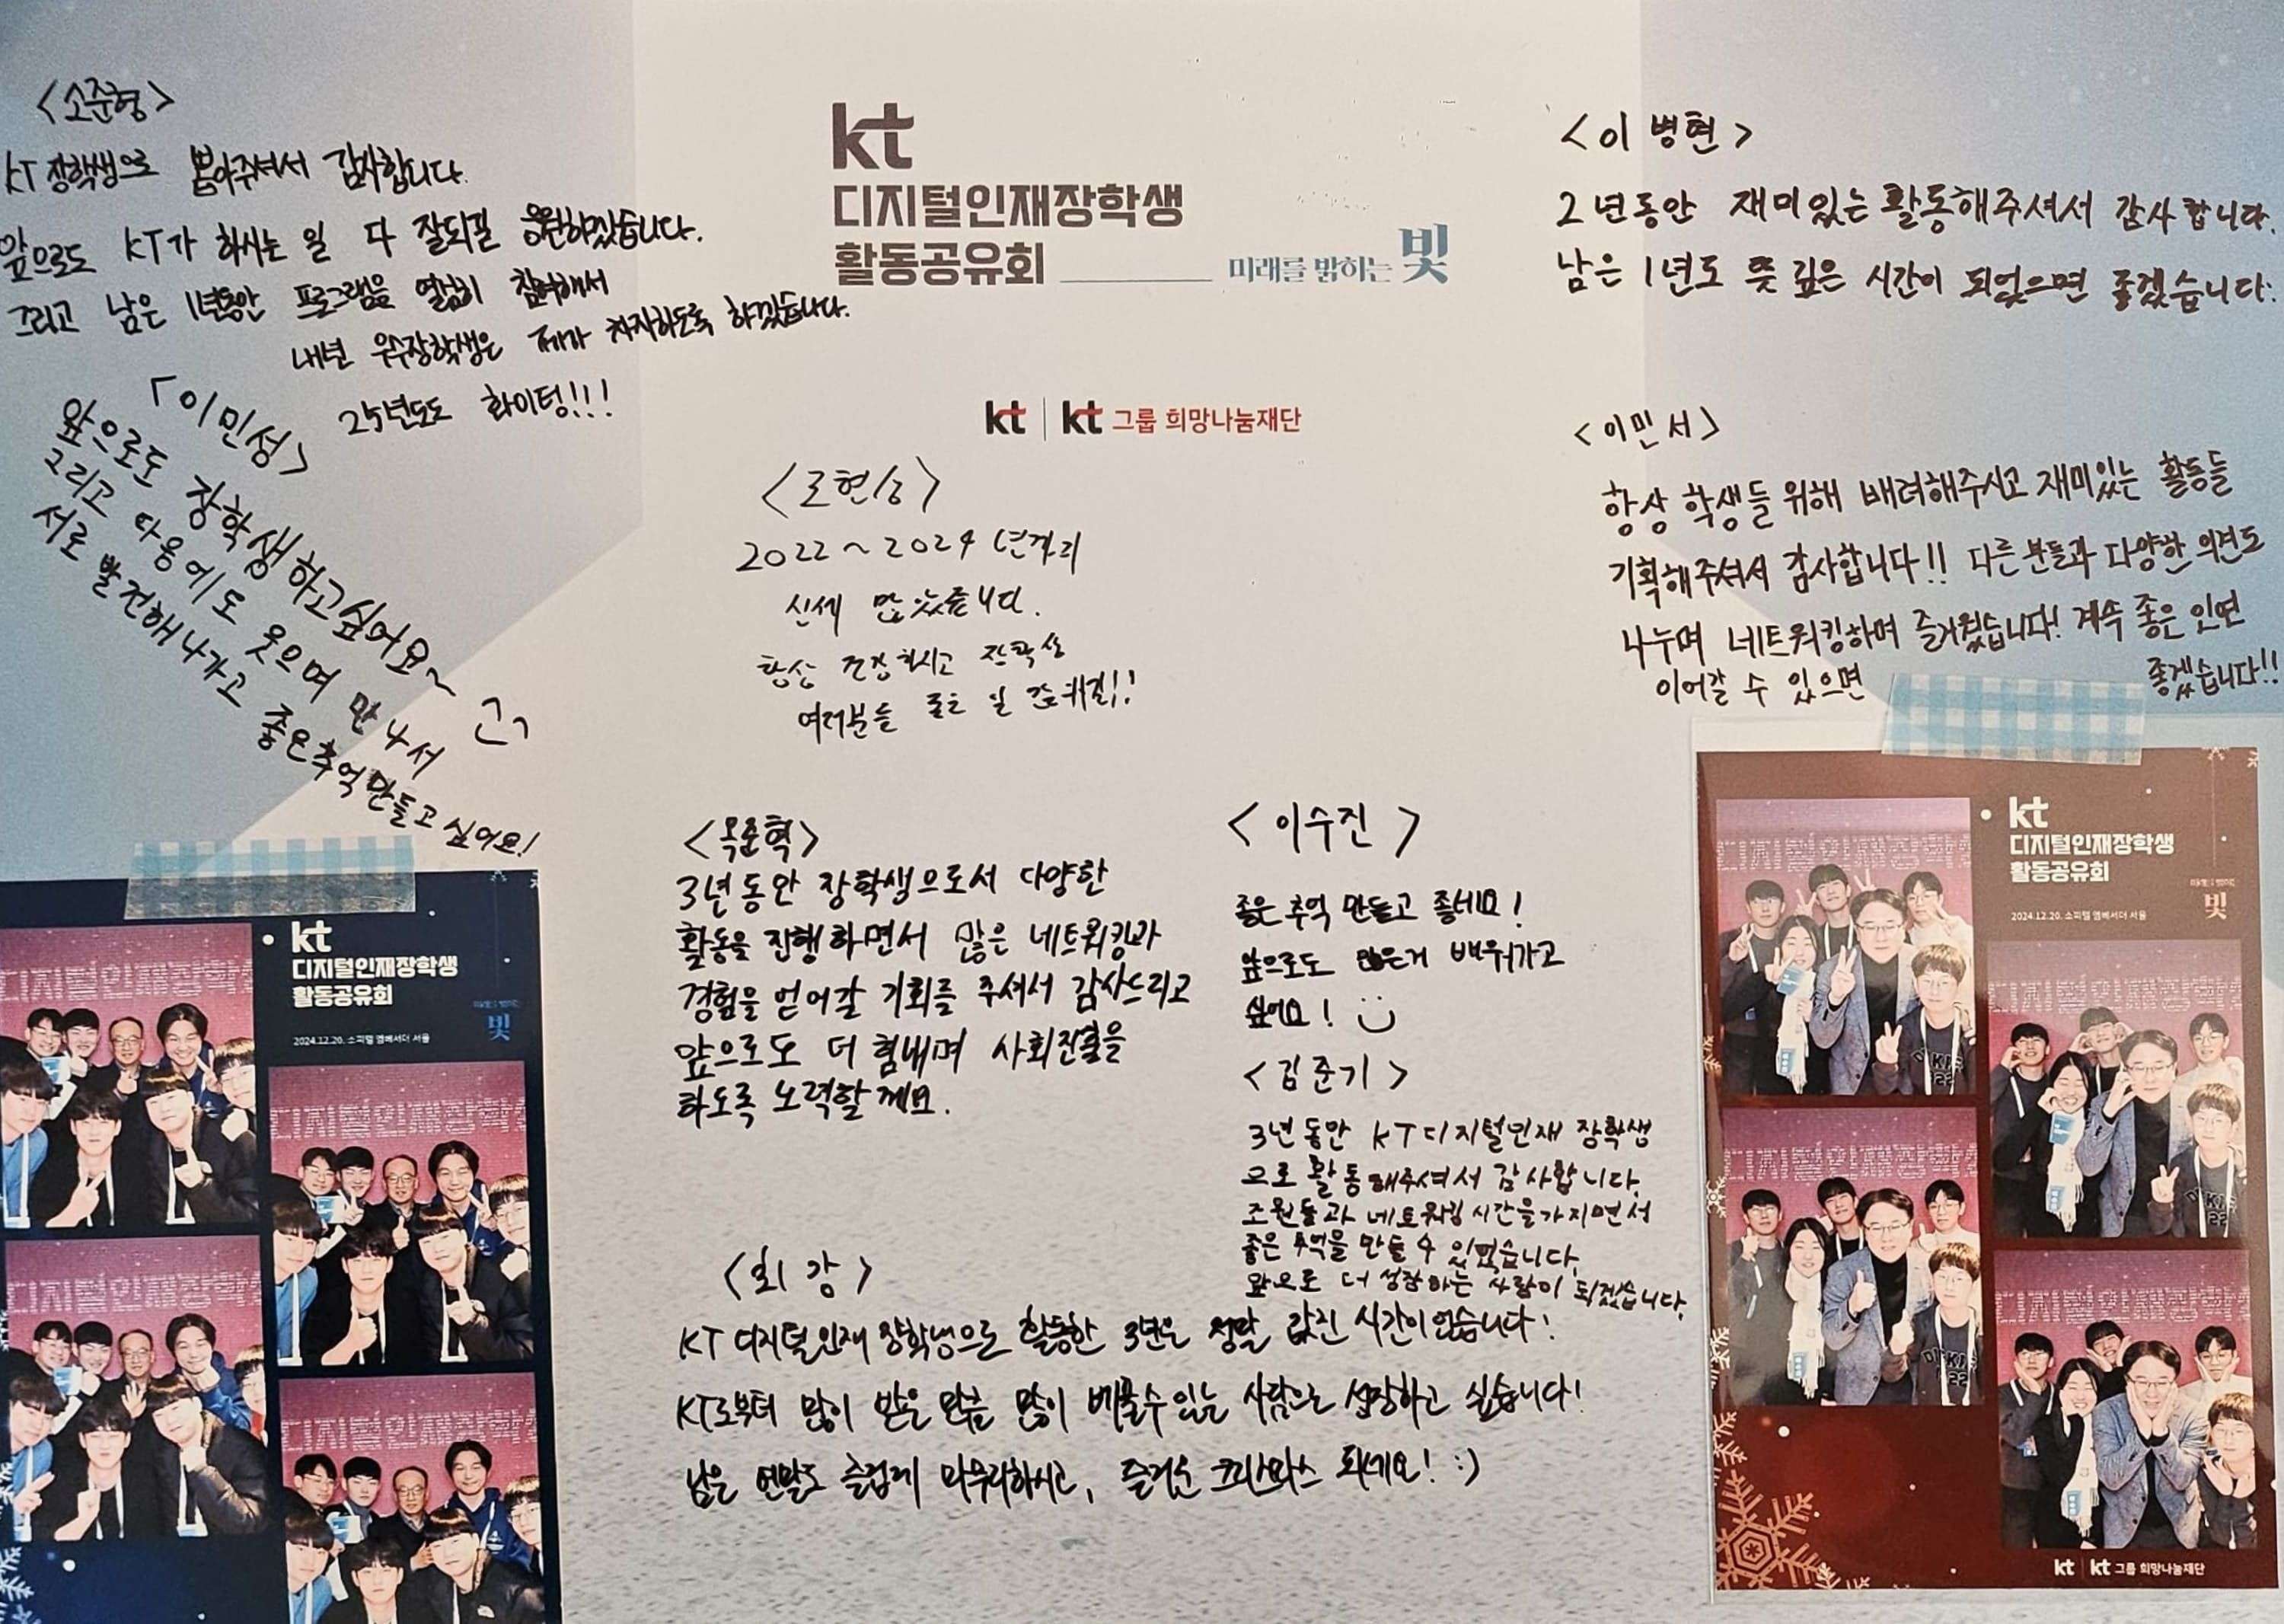 kt
디지털인재장학생
활동공유회
미래를 밝히는 빛
kt | kt 그룹 희망나눔재단
<소준형>
KT 장학생으로 뽑아주셔서 감사합니다.
앞으로도 KT가 하시는 일 다 잘되길 응원하겠습니다.
그리고 남은 1년동안 프로그램을 열심히 참여해서
내년 우수장학생은 제가 차지하도록 하겠습니다.
25년도도 화이팅!!!
「이민성>
앞으로도 장학생하고싶어요~
그리고 다음에도 웃으며 만나서
서로 발전해나가고 좋은추억만들고싶어요!
현승>
2022~2024년까지
신세 많았습니다.
항상 건강하시고 장학생
여러분들 모든 일 잘되길!!
<이병현>
2년동안 재미있는 활동해주셔서 감사합니다.
남은 1년도 뜻 깊은 시간이 되었으면 좋겠습니다.
<이민서>
항상 학생들 위해 배려해주시고 재미있는 활동들
기획해주셔서 감사합니다!! 다른 분들과 다양한 의견도
나누며 네트워킹하며 즐거웠습니다! 계속 좋은 인연
이어갈 수 있으면 좋겠습니다!!
<옥준혁>
3년동안 장학생으로서 다양한
활동을 진행하면서 많은 네트워킹과
경험을 얻어갈 기회를 주셔서 감사드리고
앞으로도 더 힘내며 사회진출을
하도록 노력할게요.
<이수진>
좋은 추억 만들고 좋네요!
앞으로도 많은거 배워가고
싶어요!
<김준기>
3년 동안 KT디지털인재 장학생
으로 활동해주셔서 감사합니다.
조원들과 네트워킹 시간을가지면서
좋은 추억을 만들 수 있었습니다.
앞으로 더 성장하는 사람이 되겠습니다.
<최강>
KT 디지털인재 장학생으로 활동한 3년은 정말 값진 시간이었습니다!
KT로부터 많이 받은 만큼 많이 베풀수있는 사람으로 성장하고 싶습니다!
남은 연말도 즐겁게 마무리하시고, 즐거운 크리스마스 되세요! :)
kt
디지털인재장학생
활동공유회
빛
2024.12.20. 소피텔 엠베서더 서울
디지털인재장학생
kt
디지털인재장학생
활동공유회
빛
2024.12.20. 소피텔 엠베서더 서울
디지털인재장학생
kt | kt 그룹 희망나눔재단